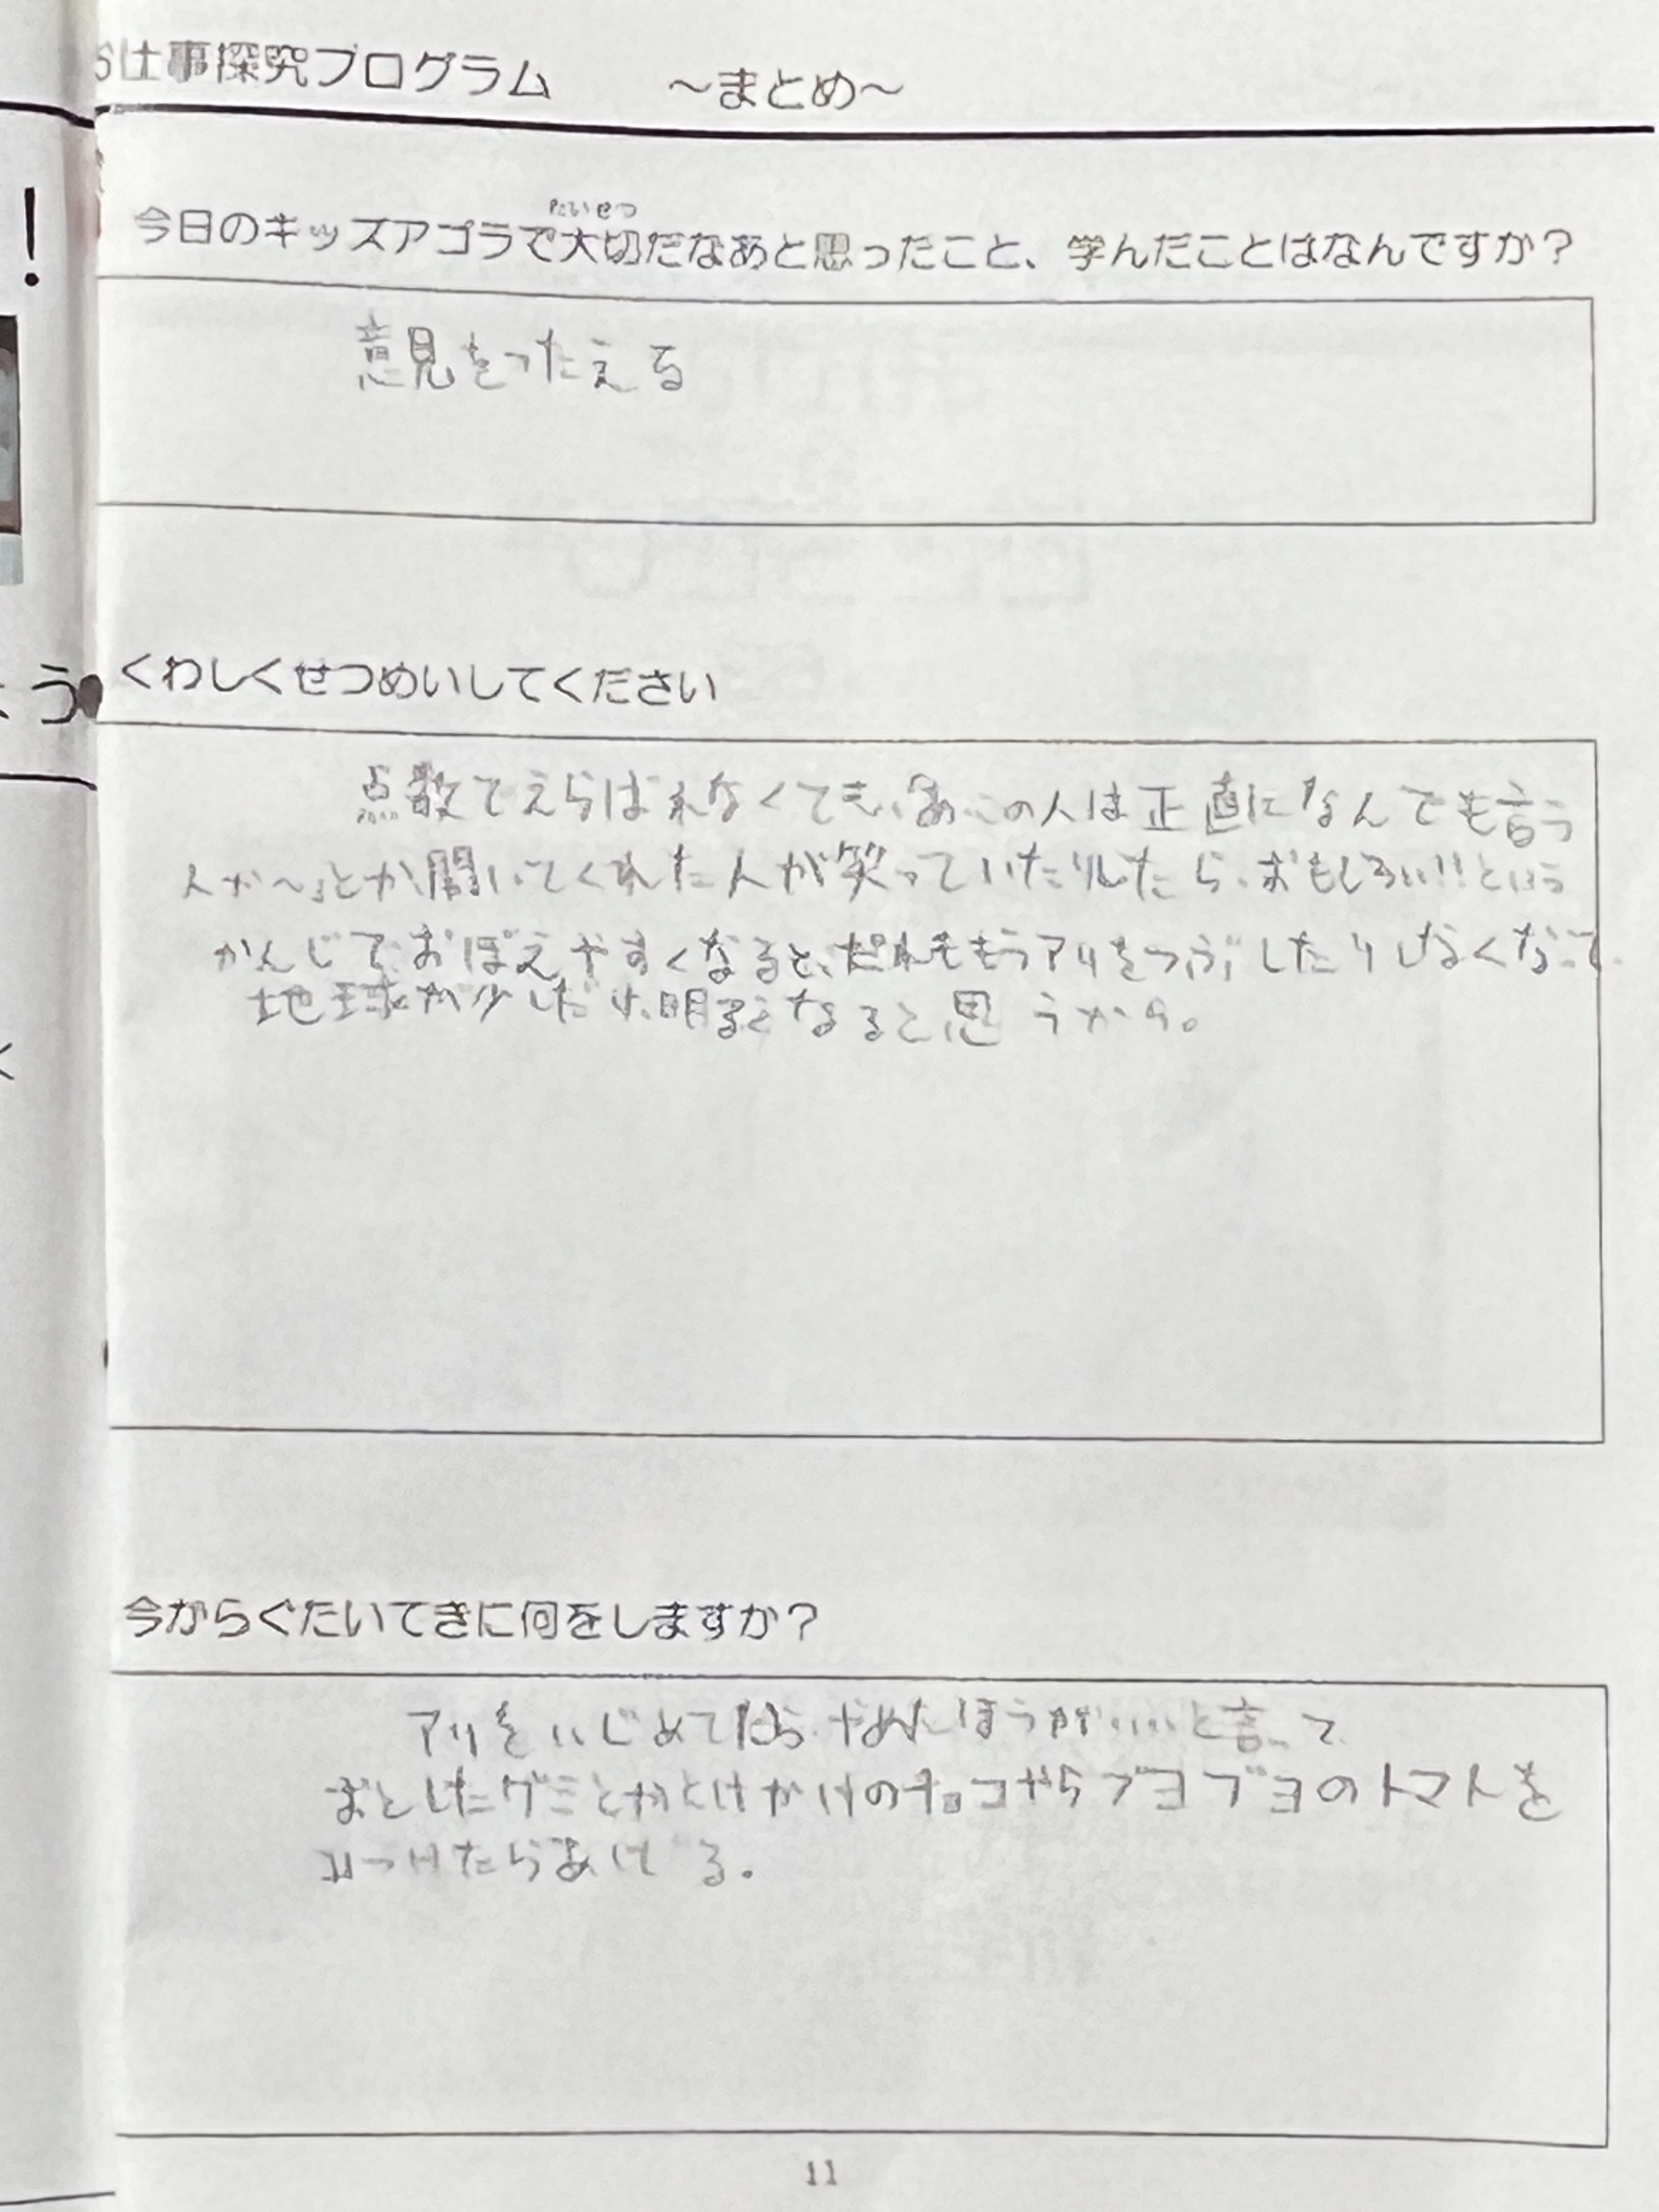 仕事探究プログラム ～まとめ～
！
たいせつ
今日のキッズアゴラで大切だなあと思ったこと、学んだことはなんですか？
意見をつたえる
う
くわしくせつめいしてください
点数でえらばれなくても、あ、この人は正直になんでも言う
人か～」とか聞いてくれた人が笑っていたりしたら、おもしろい!!という
かんじでおぼえやすくなると、だれももうアリをつぶしたりしなくなって
地球が少しだけ明るくなると思うから。
く
今からぐたいてきに何をしますか？
アリをいじめてたらやめたほうがいいと言って
おとしたグミとかとけかけのチョコやらブヨブヨのトマトを
みつけたらあげる。
11